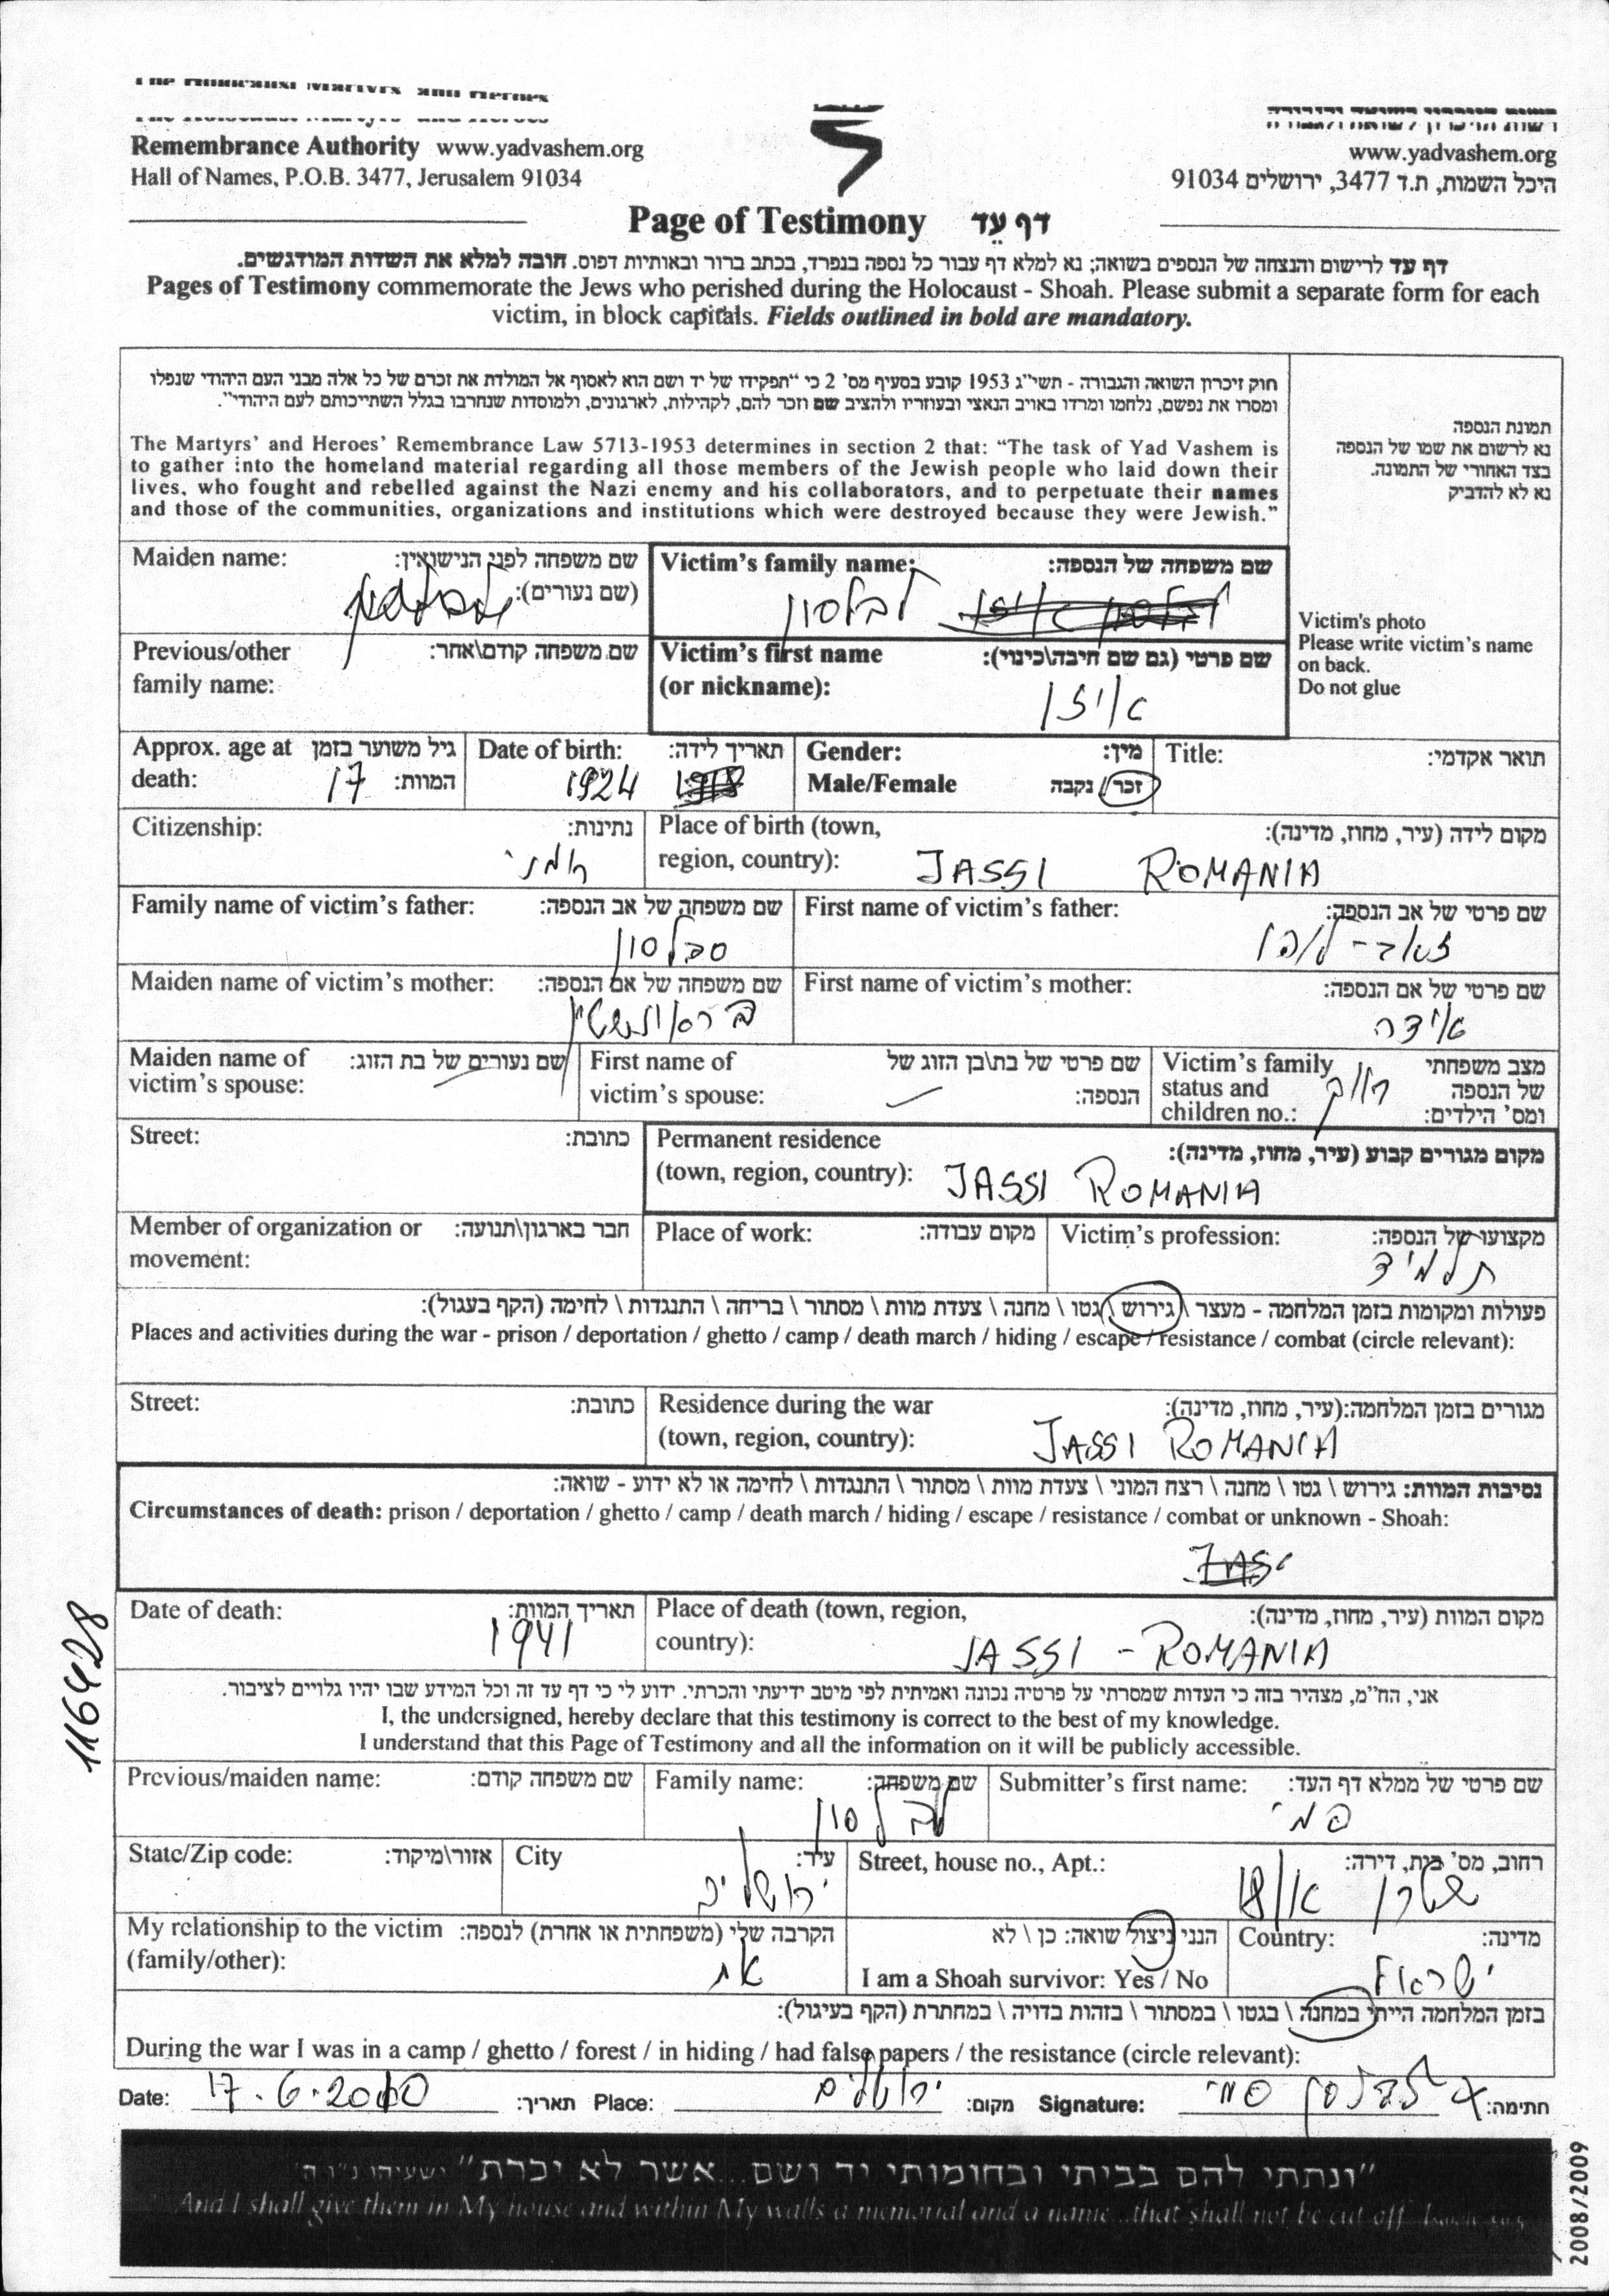 Remembrance Authority www.yadvashem.org
Hall of Names, P.O.B. 3477, Jerusalem 91034
www.yadvashem.org
היכל השמות, ת.ד 3477, ירושלים 91034
Page of Testimony דף עֵד
דף עד לרישום והנצחה של הנספים בשואה; נא למלא דף עבור כל נספה בנפרד, בכתב ברור ובאותיות דפוס. חובה למלא את השדות המודגשים.
Pages of Testimony commemorate the Jews who perished during the Holocaust - Shoah. Please submit a separate form for each
victim, in block capitals. Fields outlined in bold are mandatory.
חוק זיכרון השואה והגבורה - תשי"ג 1953 קובע בסעיף מס' 2 כי "תפקידו של יד ושם הוא לאסוף אל המולדת את זכרם של כל אלה מבני העם היהודי שנפלו
ומסרו את נפשם, נלחמו ומרדו באויב הנאצי ובעוזריו ולהציב שם וזכר להם, לקהילות, לארגונים, ולמוסדות שנחרבו בגלל השתייכותם לעם היהודי".
The Martyrs' and Heroes' Remembrance Law 5713-1953 determines in section 2 that: "The task of Yad Vashem is
to gather into the homeland material regarding all those members of the Jewish people who laid down their
lives, who fought and rebelled against the Nazi enemy and his collaborators, and to perpetuate their names
and those of the communities, organizations and institutions which were destroyed because they were Jewish."
תמונת הנספה
נא לרשום את שמו של הנספה
בצד האחורי של התמונה.
נא לא להדביק
Victim's photo
Please write victim's name
on back.
Do not glue
Maiden name: שם משפחה לפני הנישואין:
(שם נעורים):
Victim's family name: שם משפחה של הנספה:
לבלסון
Previous/other שם משפחה קודם\אחר:
family name:
Victim's first name שם פרטי (גם שם חיבה\כינוי):
(or nickname):
איזו
Approx. age at גיל משוער בזמן
death: המוות: 17
Date of birth: תאריך לידה:
1924
Gender: מין:
Male/Female זכר / נקבה
Title: תואר אקדמי:
Citizenship: נתינות:
רומני
Place of birth (town, מקום לידה (עיר, מחוז, מדינה):
region, country): JASSI ROMANIA
Family name of victim's father: שם משפחה של אב הנספה:
סבלסון
First name of victim's father: שם פרטי של אב הנספה:
Maiden name of victim's mother: שם משפחה של אם הנספה:
First name of victim's mother: שם פרטי של אם הנספה:
אידה
Maiden name of שם נעורים של בת הזוג:
victim's spouse:
First name of שם פרטי של בת\בן הזוג של
victim's spouse: הנספה:
Victim's family מצב משפחתי
status and של הנספה
children no.: ומס' הילדים:
רווק
Street: כתובת:
Permanent residence מקום מגורים קבוע (עיר, מחוז, מדינה):
(town, region, country): JASSI ROMANIA
Member of organization or חבר בארגון\תנועה:
movement:
Place of work: מקום עבודה:
Victim's profession: מקצועו של הנספה:
תלמיד
פעולות ומקומות בזמן המלחמה - מעצר \ גירוש \ גטו \ מחנה \ צעדת מוות \ מסתור \ בריחה \ התנגדות \ לחימה (הקף בעגול):
Places and activities during the war - prison / deportation / ghetto / camp / death march / hiding / escape / resistance / combat (circle relevant):
Street: כתובת:
Residence during the war מגורים בזמן המלחמה:(עיר, מחוז, מדינה):
(town, region, country): JASSI ROMANIA
נסיבות המוות: גירוש \ גטו \ מחנה \ רצח המוני \ צעדת מוות \ מסתור \ התנגדות \ לחימה או לא ידוע - שואה:
Circumstances of death: prison / deportation / ghetto / camp / death march / hiding / escape / resistance / combat or unknown - Shoah:
Date of death: תאריך המוות:
1941
Place of death (town, region, מקום המוות (עיר, מחוז, מדינה):
country): JASSI - ROMANIA
אני, הח"מ, מצהיר בזה כי העדות שמסרתי על פרטיה נכונה ואמיתית לפי מיטב ידיעתי והכרתי. ידוע לי כי דף עד זה וכל המידע שבו יהיו גלויים לציבור.
I, the undersigned, hereby declare that this testimony is correct to the best of my knowledge.
I understand that this Page of Testimony and all the information on it will be publicly accessible.
Previous/maiden name: שם משפחה קודם:
Family name: שם משפחה:
לבלסון
Submitter's first name: שם פרטי של ממלא דף העד:
סמי
State/Zip code: אזור\מיקוד:
City עיר:
ירושלים
Street, house no., Apt.: רחוב, מס' בית, דירה:
My relationship to the victim הקרבה שלי (משפחתית או אחרת) לנספה:
(family/other): אח
הנני ניצול שואה: כן \ לא
I am a Shoah survivor: Yes / No
Country: מדינה:
ישראל
בזמן המלחמה הייתי במחנה \ בגטו \ במסתור \ בזהות בדויה \ במחתרת (הקף בעיגול):
During the war I was in a camp / ghetto / forest / in hiding / had false papers / the resistance (circle relevant):
Date: 17.6.2010 תאריך: Place: ירושלים מקום: Signature: לבלסון סמי חתימה:
"ונתתי להם בביתי ובחומותי יד ושם...אשר לא יכרת" ישעיהו נ"ו ה'
And I shall give them in My house and within My walls a memorial and a name...that shall not be cut off
116428
2008/2009